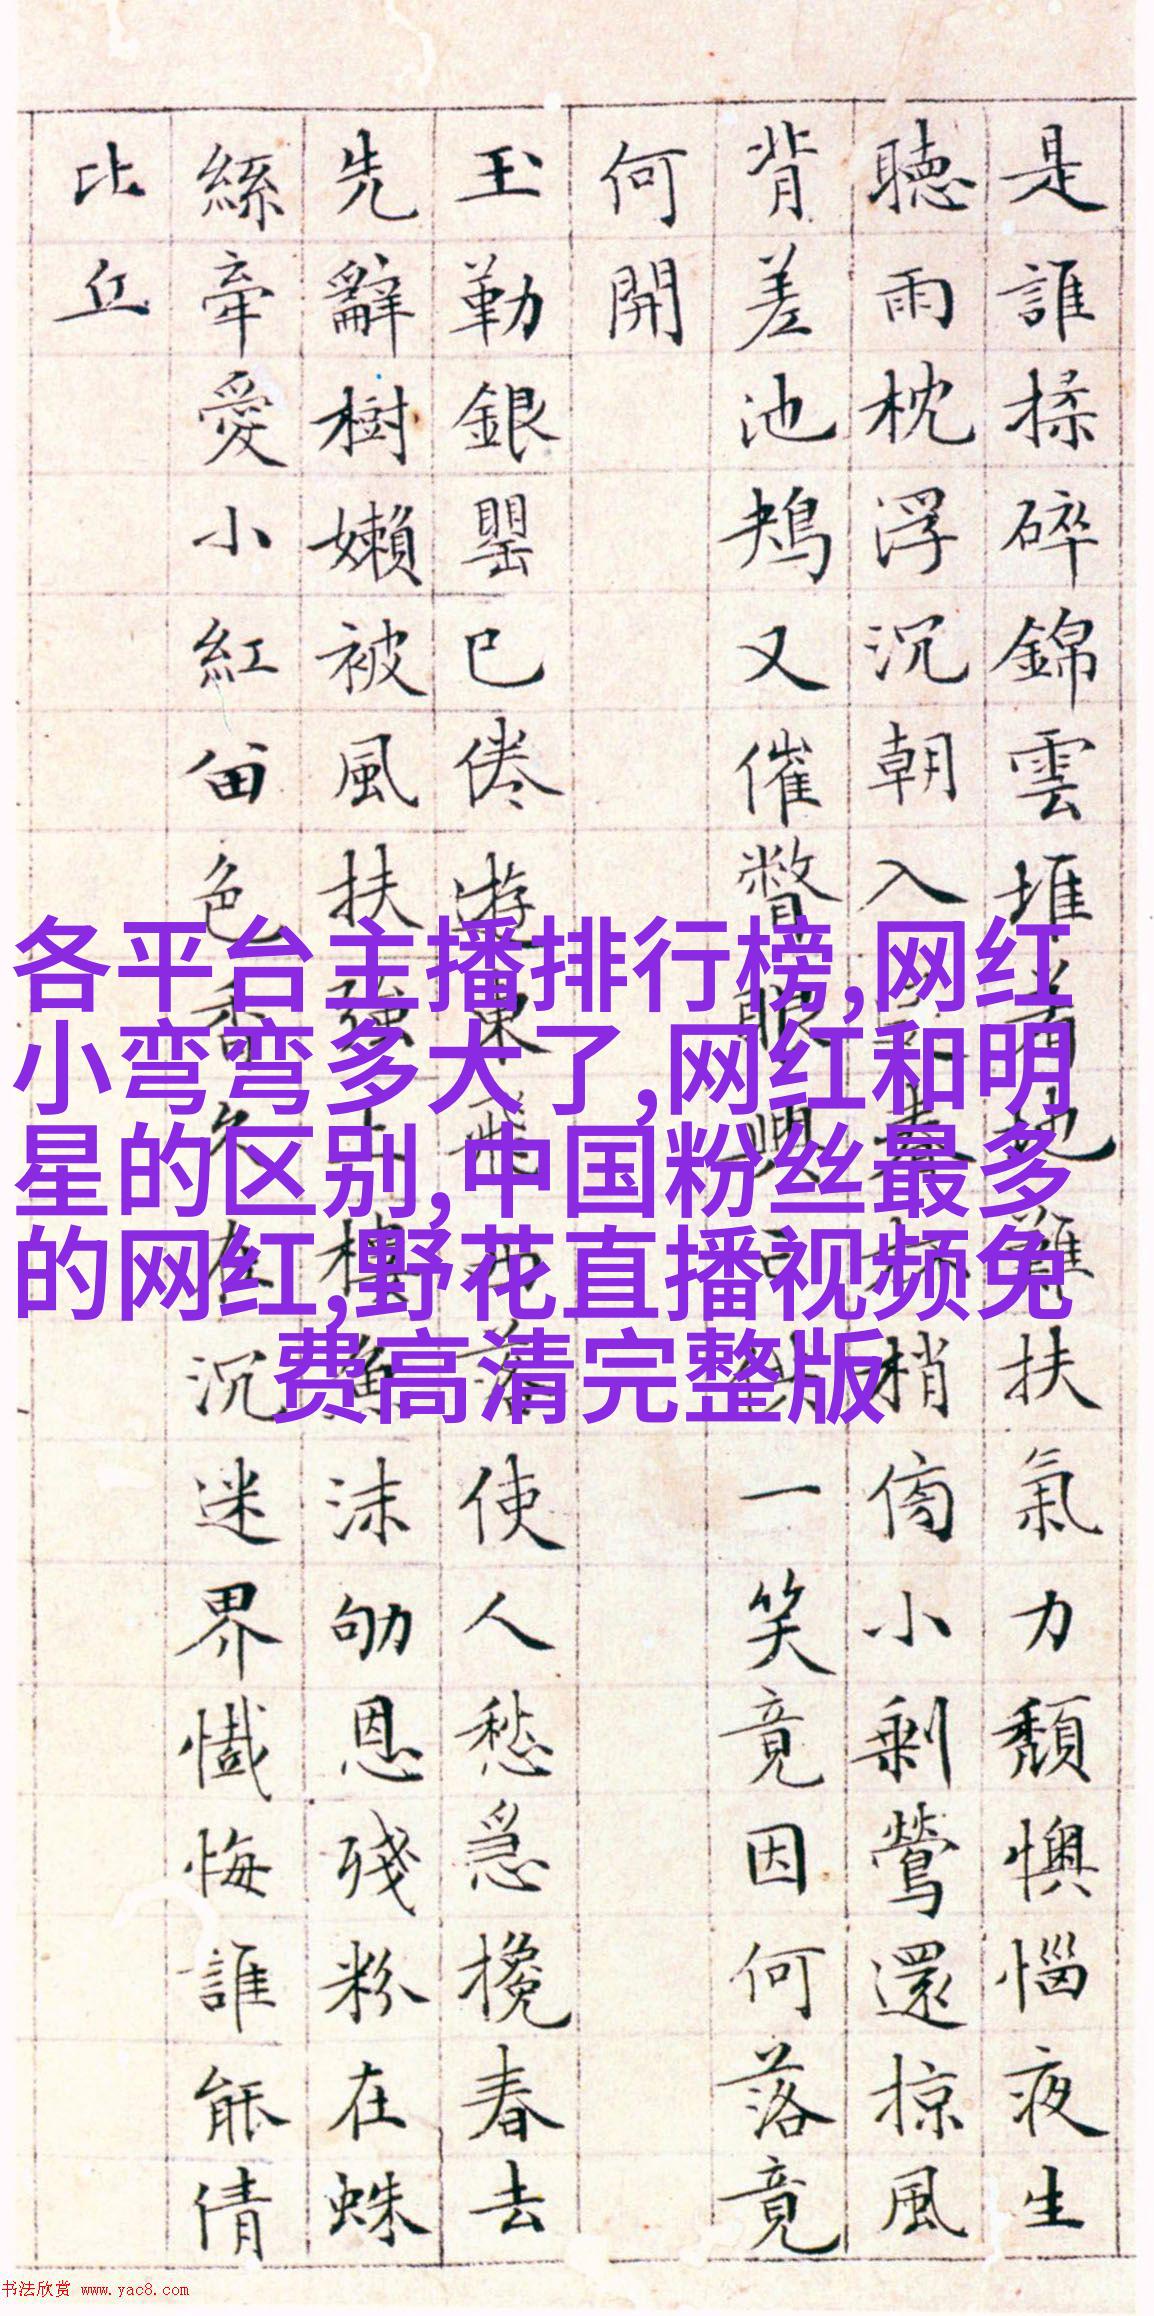 是誰揉碎錦雲堆着地難扶氣力頹懊惱夜生
聽雨枕浮沉朝入春梢傍小剩鶯還掠風
背差池鴂又催瞥眼興一笑竟因何落竟
何開
玉勒銀罌已倦遊東飛西落使人愁急攙春去
先辭樹嬾被風扶強上樓魚沫劬恩殘粉在蛛
絲牽愛小紅留色香久在沉迷界懺悔誰能倩
比丘
各平台主播排行榜,网红
小弯弯多大了,网红和明
星的区别,中国粉丝最多
的网红,野花直播视频免
费高清完整版
书法欣赏 www.yac8.com